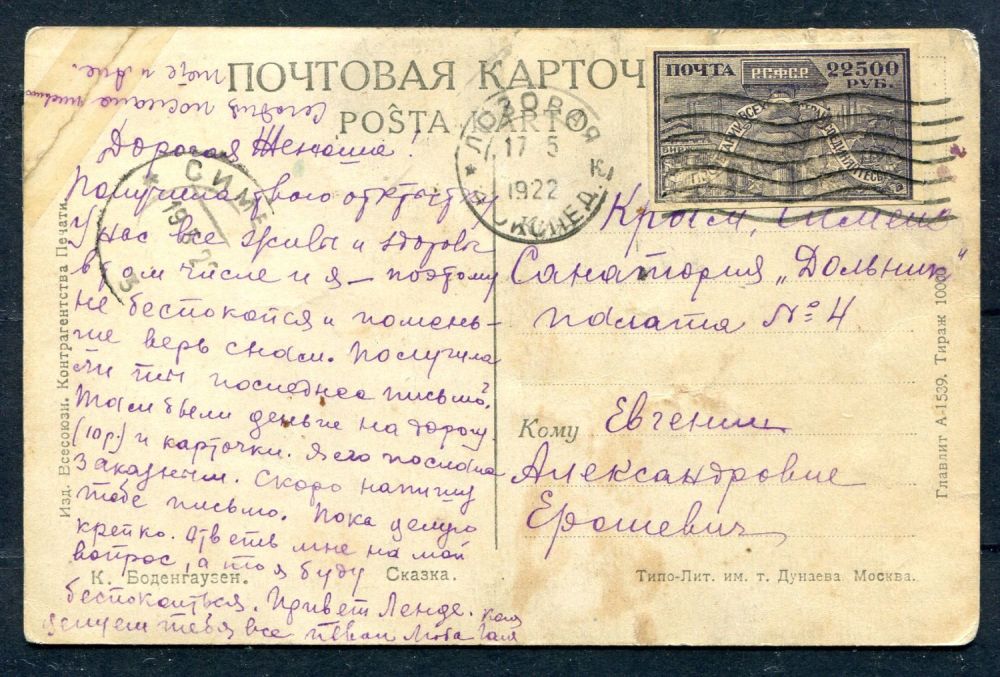 ПОЧТОВАЯ КАРТОЧ
POŜTA KARTO
ПОЧТА Р.С.Ф.С.Р. 22500
РУБ.
ЛОЗОВАЯ
17 5
1922
СИМ
19
Сегодня послала письмо
тоже и Ане.
Дорогая Женюша!
Получила твою открытку
У нас все живы и здоровы
в том числе и я — поэтому
не беспокойся и помень-
ше верь снам. Получила
ли ты последнее письмо?
Там были деньги на дорогу
(10р.) и карточки. Я его послала
заказным. Скоро напишу
тебе письмо. Пока целую
крепко. Ответь мне на мой
вопрос, а то я буду
беспокоиться. Привет Ленде.
целуем тебя все Люба Галя
Крым,
Санатория „Дольник“
палата № 4
Кому Евгении
Александровне
Ерошевич
К. Боденгаузен. Сказка.
Типо-Лит. им. т. Дунаева Москва.
Изд. Всесоюзн. Контрагентства Печати.
Главлит А-1539. Тираж 10000